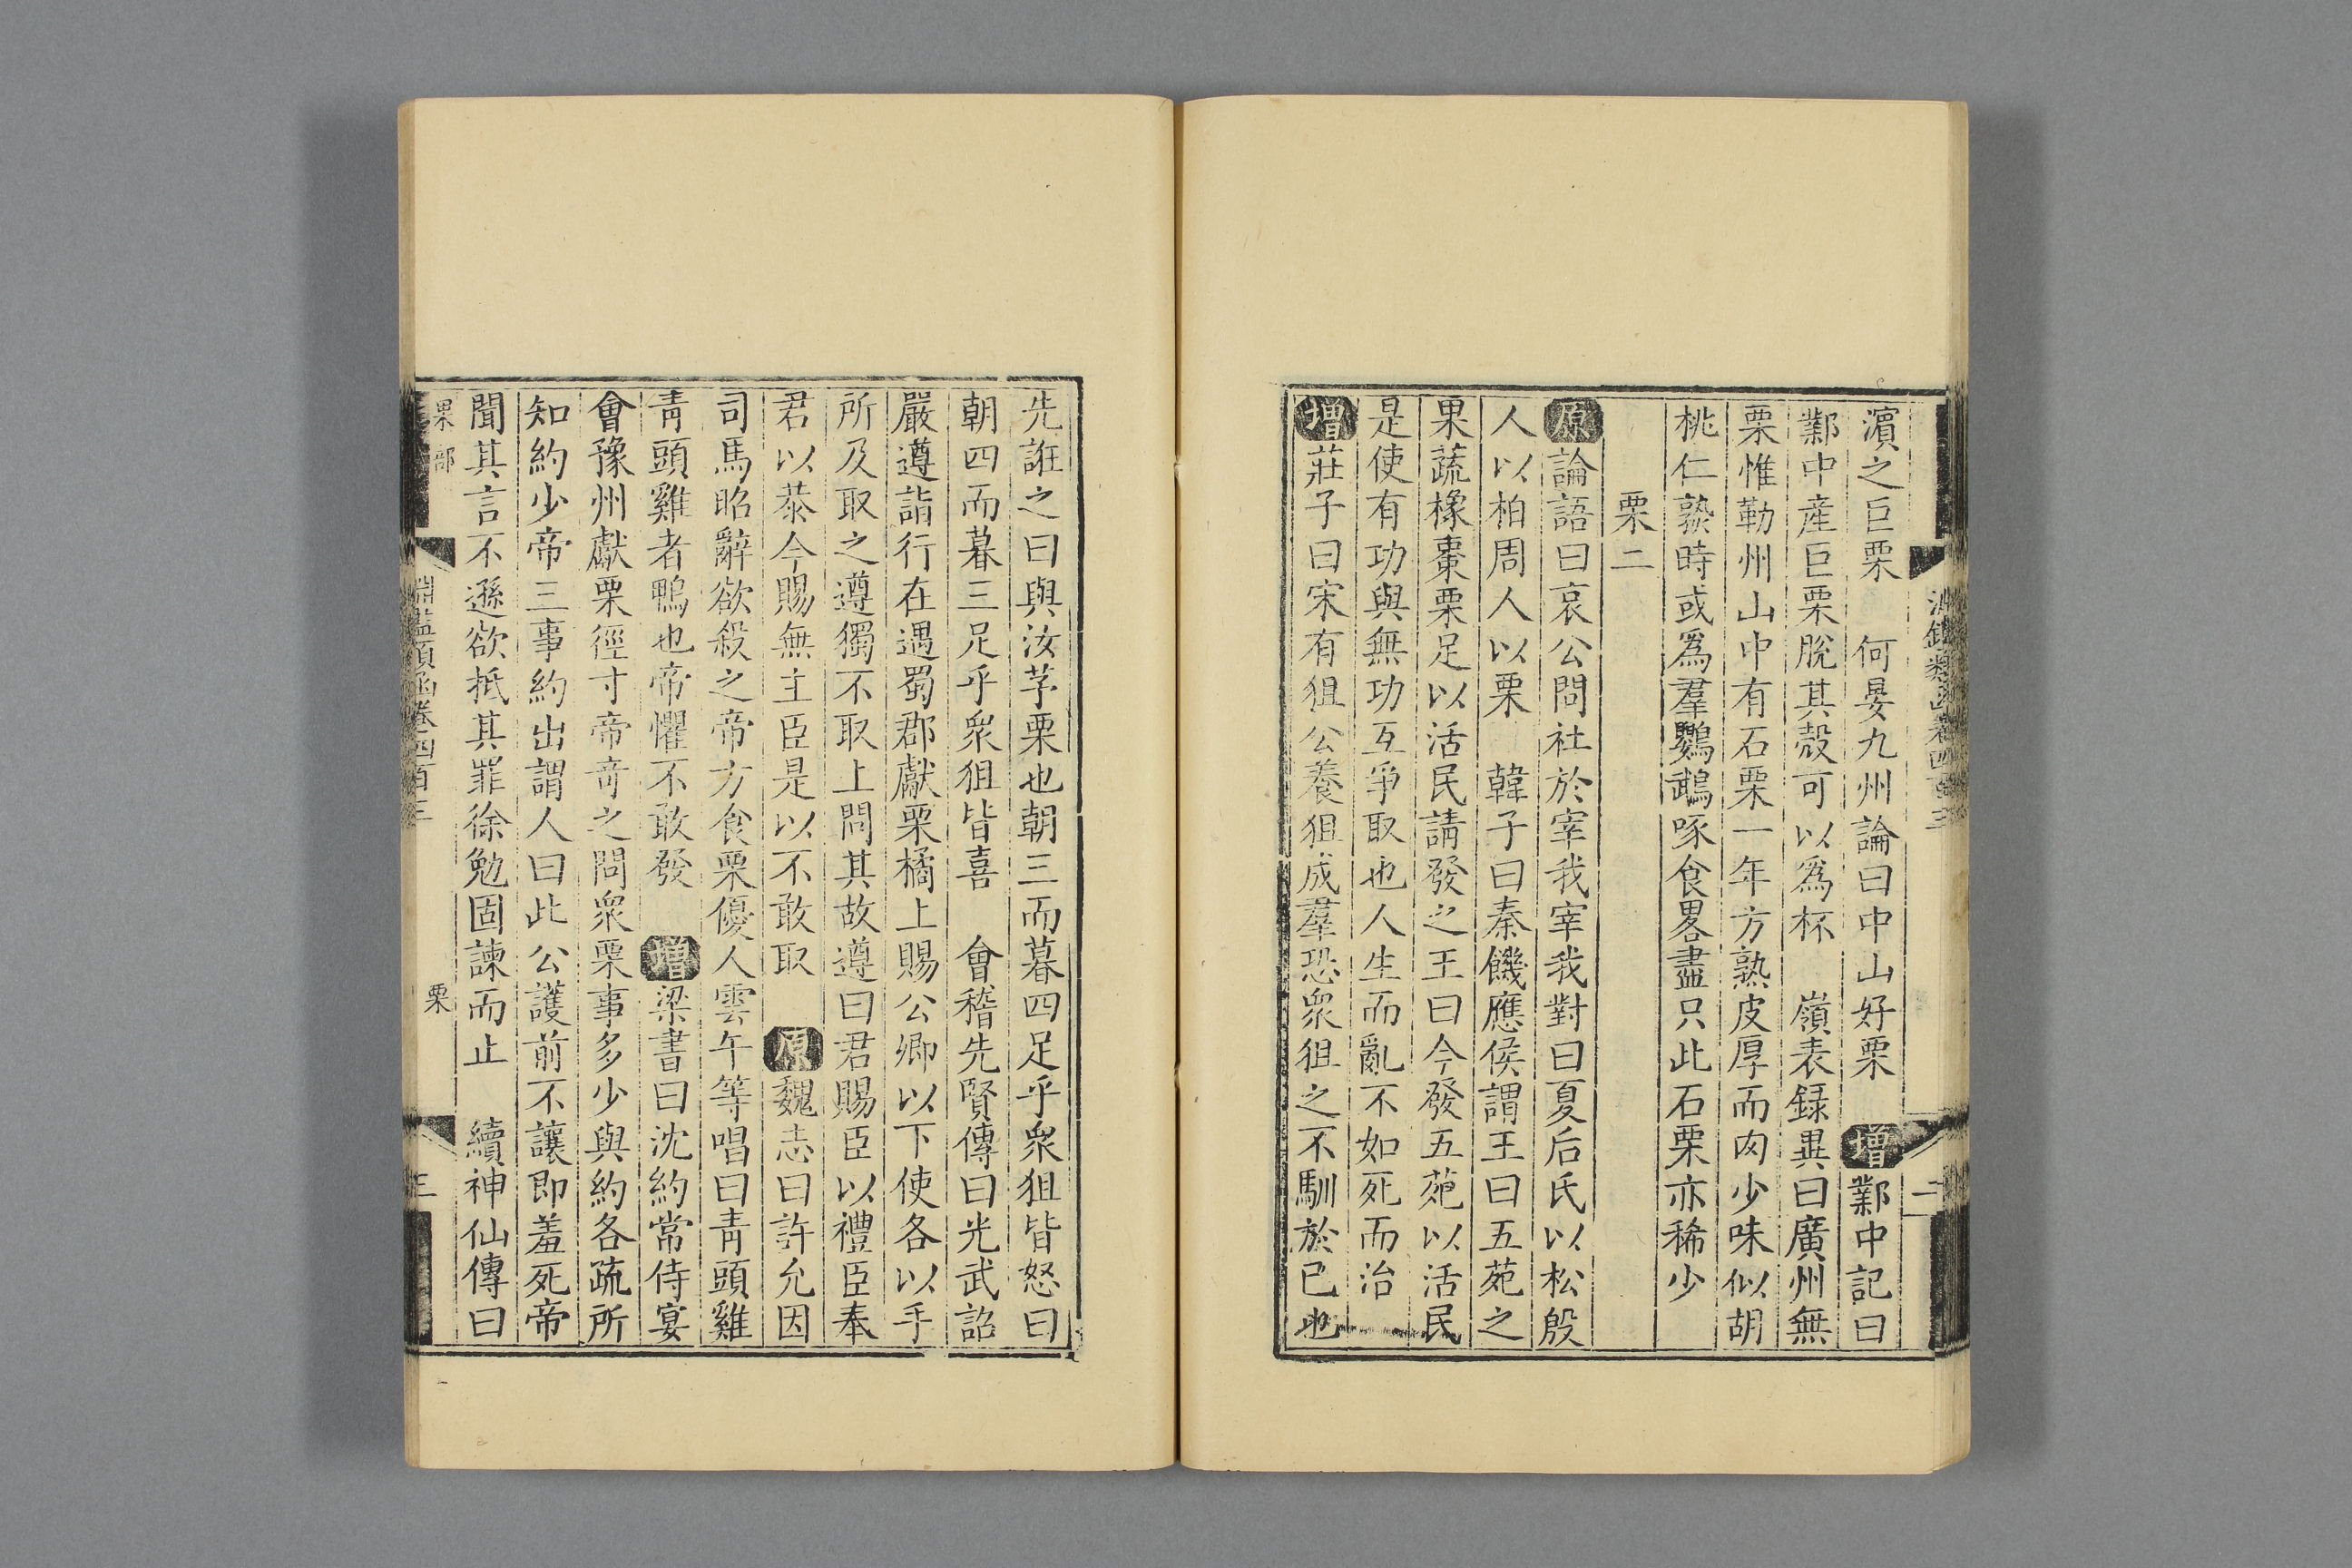 濵之巨栗　何晏九州論曰中山好栗　增鄴中記曰
鄴中産巨栗脫其殼可以爲杯　嶺表録異曰廣州無
栗惟勤州山中有石栗一年方熟皮厚而肉少味似胡
桃仁熟時或爲羣鸚鵡啄食畧盡只此石栗亦稀少
栗二
原論語曰哀公問社於宰我宰我對曰夏后氏以松殷
人以柏周人以栗　韓子曰秦饑應侯謂王曰五苑之
果蔬橡棗栗足以活民請發之王曰今發五苑以活民
是使有功與無功互爭取也人生而亂不如死而治
增莊子曰宋有狙公養狙成羣恐衆狙之不馴於已也
先誑之曰與汝芧栗也朝三而暮四足乎衆狙皆怒曰
朝四而暮三足乎衆狙皆喜　會稽先賢傳曰光武詔
嚴遵詣行在遇蜀郡獻栗橘上賜公卿以下使各以手
所及取之遵獨不取上問其故遵曰君賜臣以禮臣奉
君以恭今賜無主臣是以不敢取　原魏志曰許允因
司馬昭辭欲殺之帝方食栗優人雲午等唱曰靑頭雞
靑頭雞者鴨也帝懼不敢發　增梁書曰沈約常侍宴
會豫州獻栗徑寸帝竒之問衆栗事多少與約各疏所
知約少帝三事約出謂人曰此公護前不讓即羞死帝
聞其言不遜欲抵其罪徐勉固諫而止　續神仙傳曰
果部
淵鑑類函卷四百三
栗
三